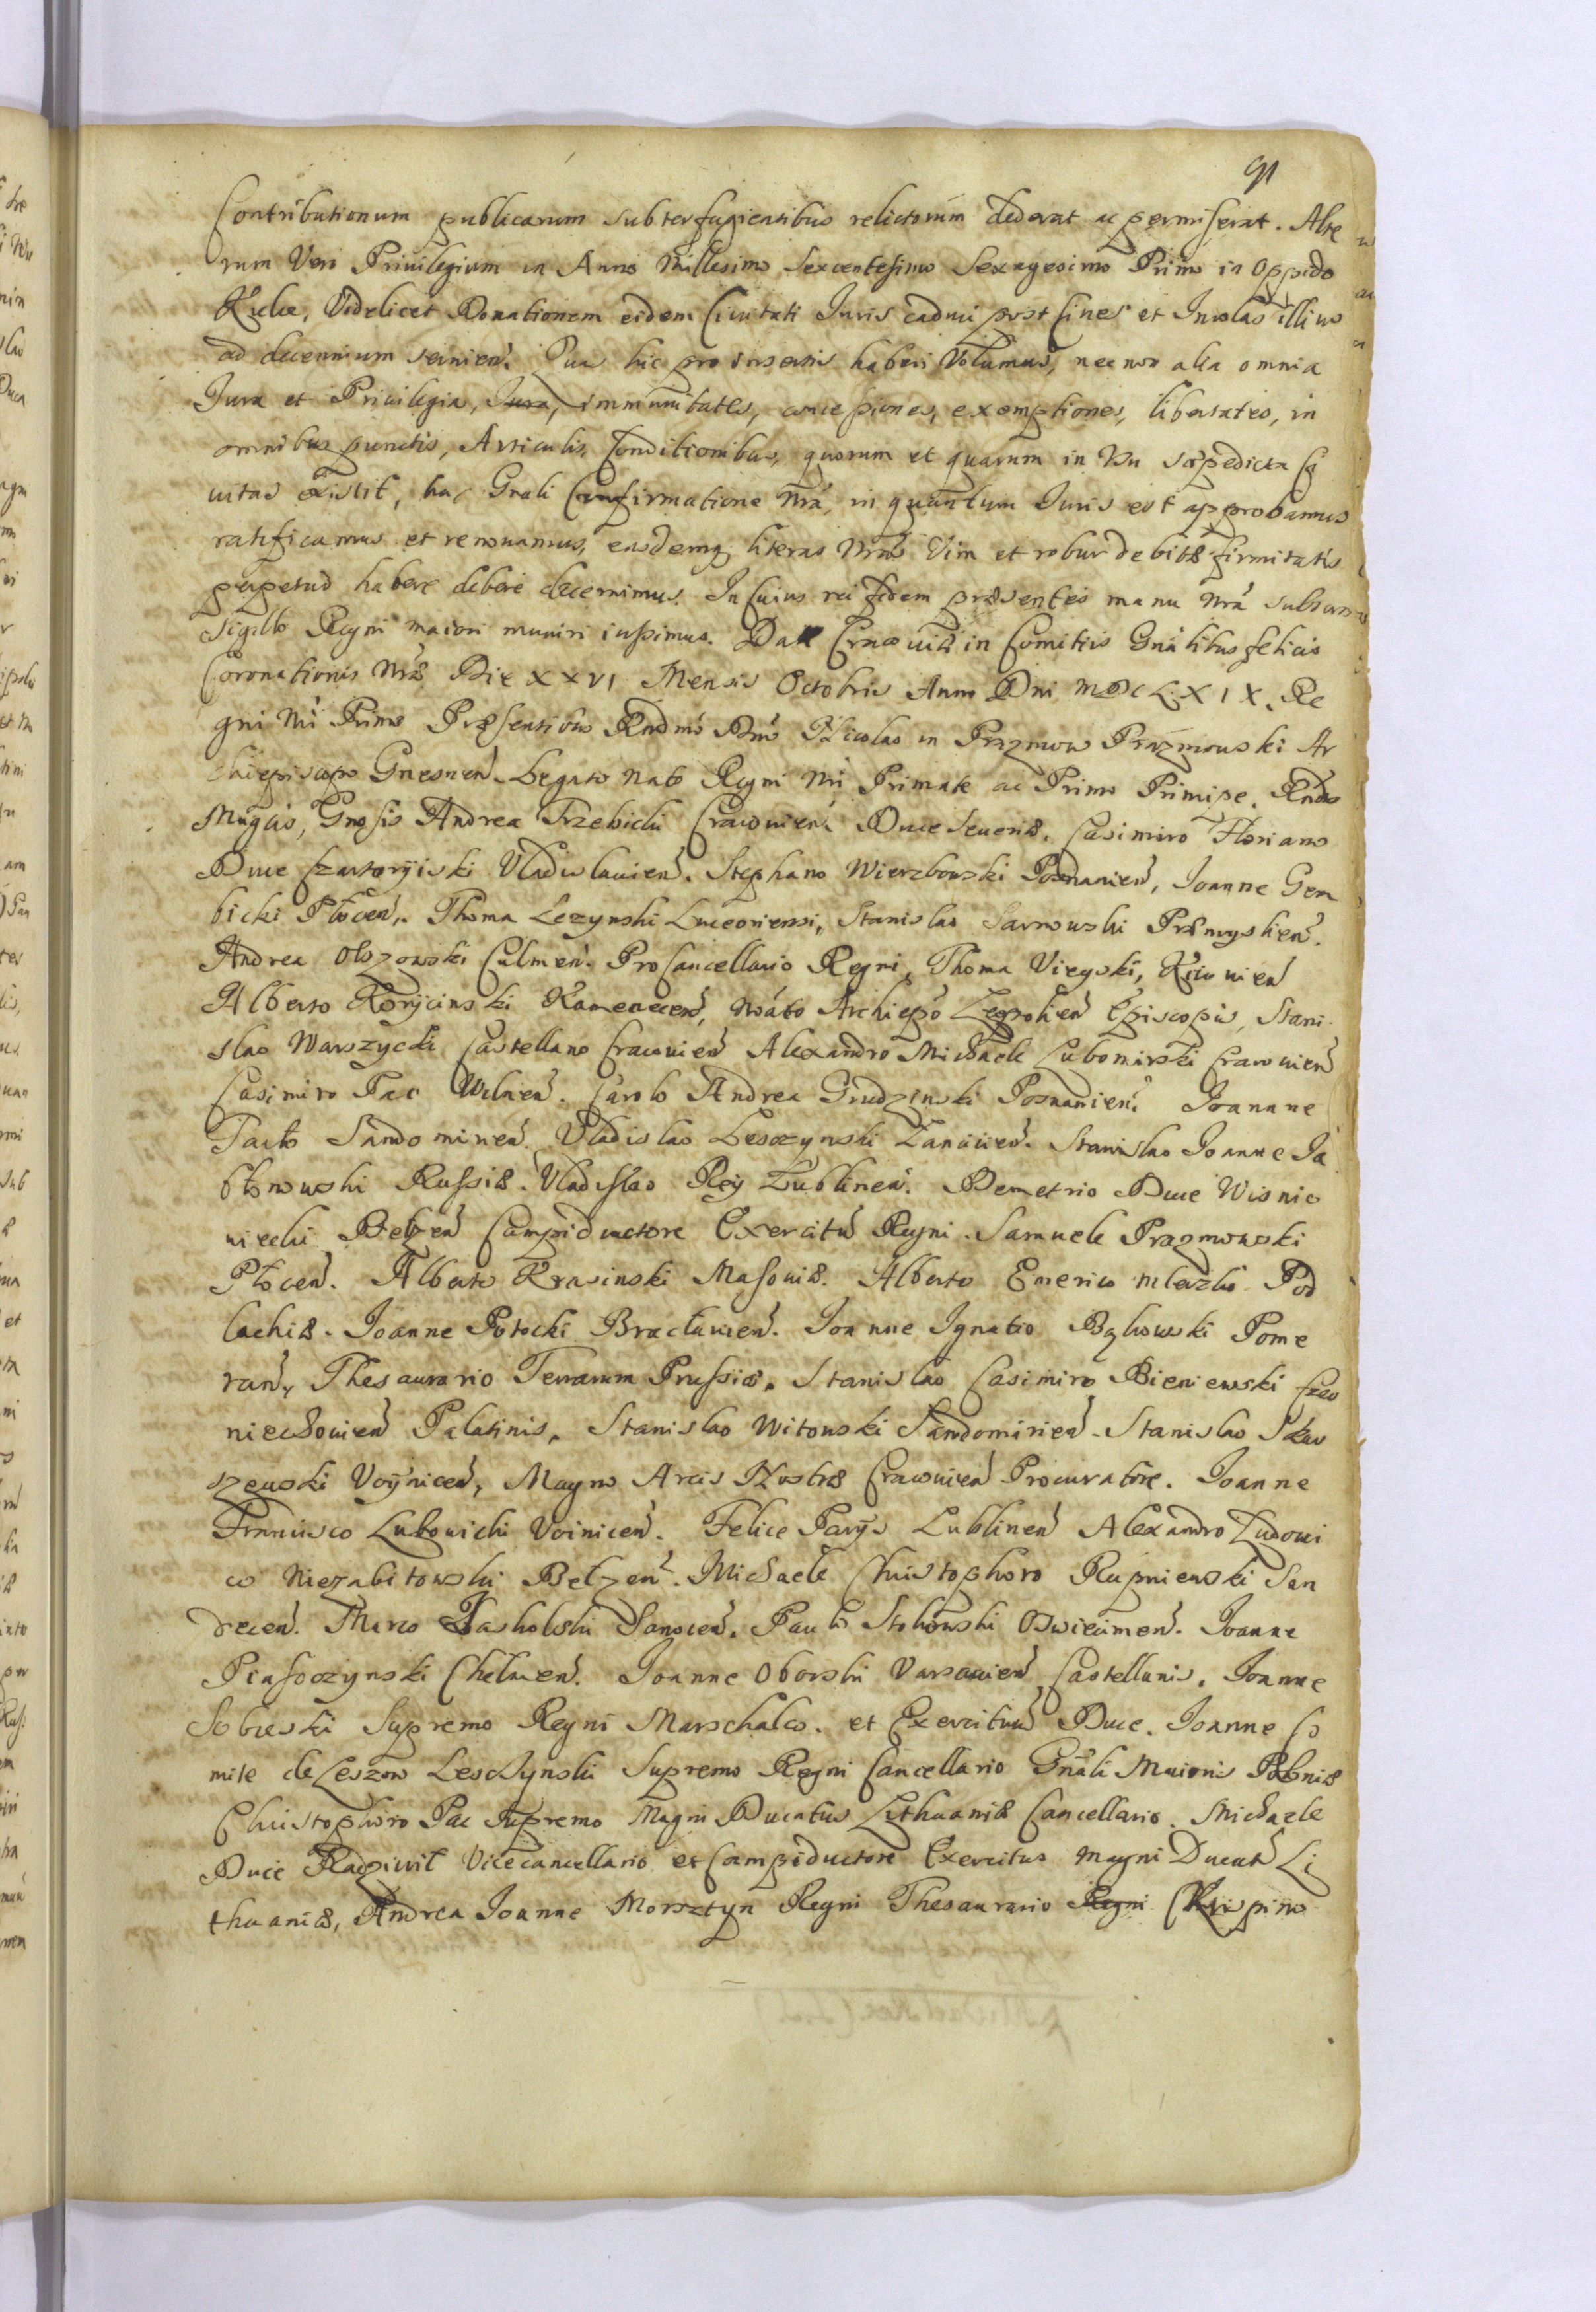 91
Contributionum publicarum subterfugientibus relictorum dederat ac permiserat. Alte
rum Vero Privilegium in Anno Millesimo Sexcentesimo Sexagesimo Primo in Oppido
Videlicet Donationem eidem Civitati Iuris caduci post Cives et Incolas illius
ad decennium servien. Qua hic pro insertis haberi Volumus, nec non alia omnia
Iura et Privilegia, Iura, immunitates, concessiones, exemptiones, libertates, in
omnibus punctis, Articulis, Conditionibus, quorum et quarum in Usu sæpedicta Ci
vitas existit, hac Grali Confirmatione Nrã, in quantum Iuris est approbamus
ratificamus et renovamus, easdemq literas Nras Vim et robur debitæ firmitatis
perpetuo habere debere decernimus. In Cuius rei fidem præsentes manu Nrã
Sigillo Regni maiori muniri iussimus. Dat Cracoviæ in Comitiis Gnãlibus felicis
Coronationis Nræ Die XXVI Mensis Octobris Anno Dni MDCLXIX. Re
gni Nri Primo Præsentibus Rndmo Dno Nicolao in Prazmow Prazmowski Ar
chiepiscopo Gnesnen. Legato Nato Regni Nri Primate ac Primo Principe. Rndis
Magcis, Gnosis Andrea Trzebicki Cracovien. Duce Severiæ. Casimiro Floriano
Duce Czartoryiski Vladislavien. Stephano Wierzbowski Posnanien, Joanne Gem
bicki Płocen. Thoma Lezynski Luceoriensi, Stanislao Sarnowski Præmyslien.
Andrea Olszowski Culmen. ProCancellario Regni, Thoma Vieyski, Kiiovien
Alberto Korycinski Kamenecen, Nõato Archiepõ Leopolien Episcopis, Stani
slao Warszycki Castellano Cracovien Alexandro Michaele Lubomirski Cracovien
Casimiro Pac Wilnen. Carolo Andrea Grudzinski Posnanien. Joannne
Tarło Sandomirien. Vladislao Lesczynski Lancicien. Stanislao Joanne Ja
błonowski Russiæ. Vladislao Rey Lublinen. Demetrio Duce Wisnio
wiecki Belzen Campiductore Exercitus Regni. Samuele Prazmowski
Płocen. Alberto Krasinski Masoviæ. Alberto Emerico Mleczko Pod
lachiæ. Joanne Potocki Bracłavien. Joanne Ignatio Bąkowski Pome
ran, Thesaurario Terrarum Prussiæ. Stanislao Casimiro Bieniewski Czer
niechovien Palatinis, Stanislao Witowski Sandomirien. Stanislao Skar
szewski Voynicen, Magno Arcis Nostræ Cracovien Procuratore. Joanne
Francisco Lubowicki Voinicen. Felice Parys Lublinen Alexandro Ludovi
co Niezabitowski Belzen. Michaele Christophoro Rupniewski San
decen. Marco Sanocen. Paulo Stokowski Oswiecimen. Joanne
Piasoczynski Chelmen. Joanne Oborski Varsavien Castellanis. Joanne
Sobieski Supremo Regni Marschalco. et Exercituum Duce. Joanne Co
mite de Leszno Lesczynski Supremo Regni Cancellario Gnãli Maioris Poloniæ
Christophoro Pac Supremo Magni Ducatus Lithuaniæ Cancellario. Michaele
Duce Radziwił Vicecancellario et Campiductore Exercitus Magni Ducatus Li
thuaniæ, Andrea Joanne Morsztyn Regni Thesaurario Regni Krispino